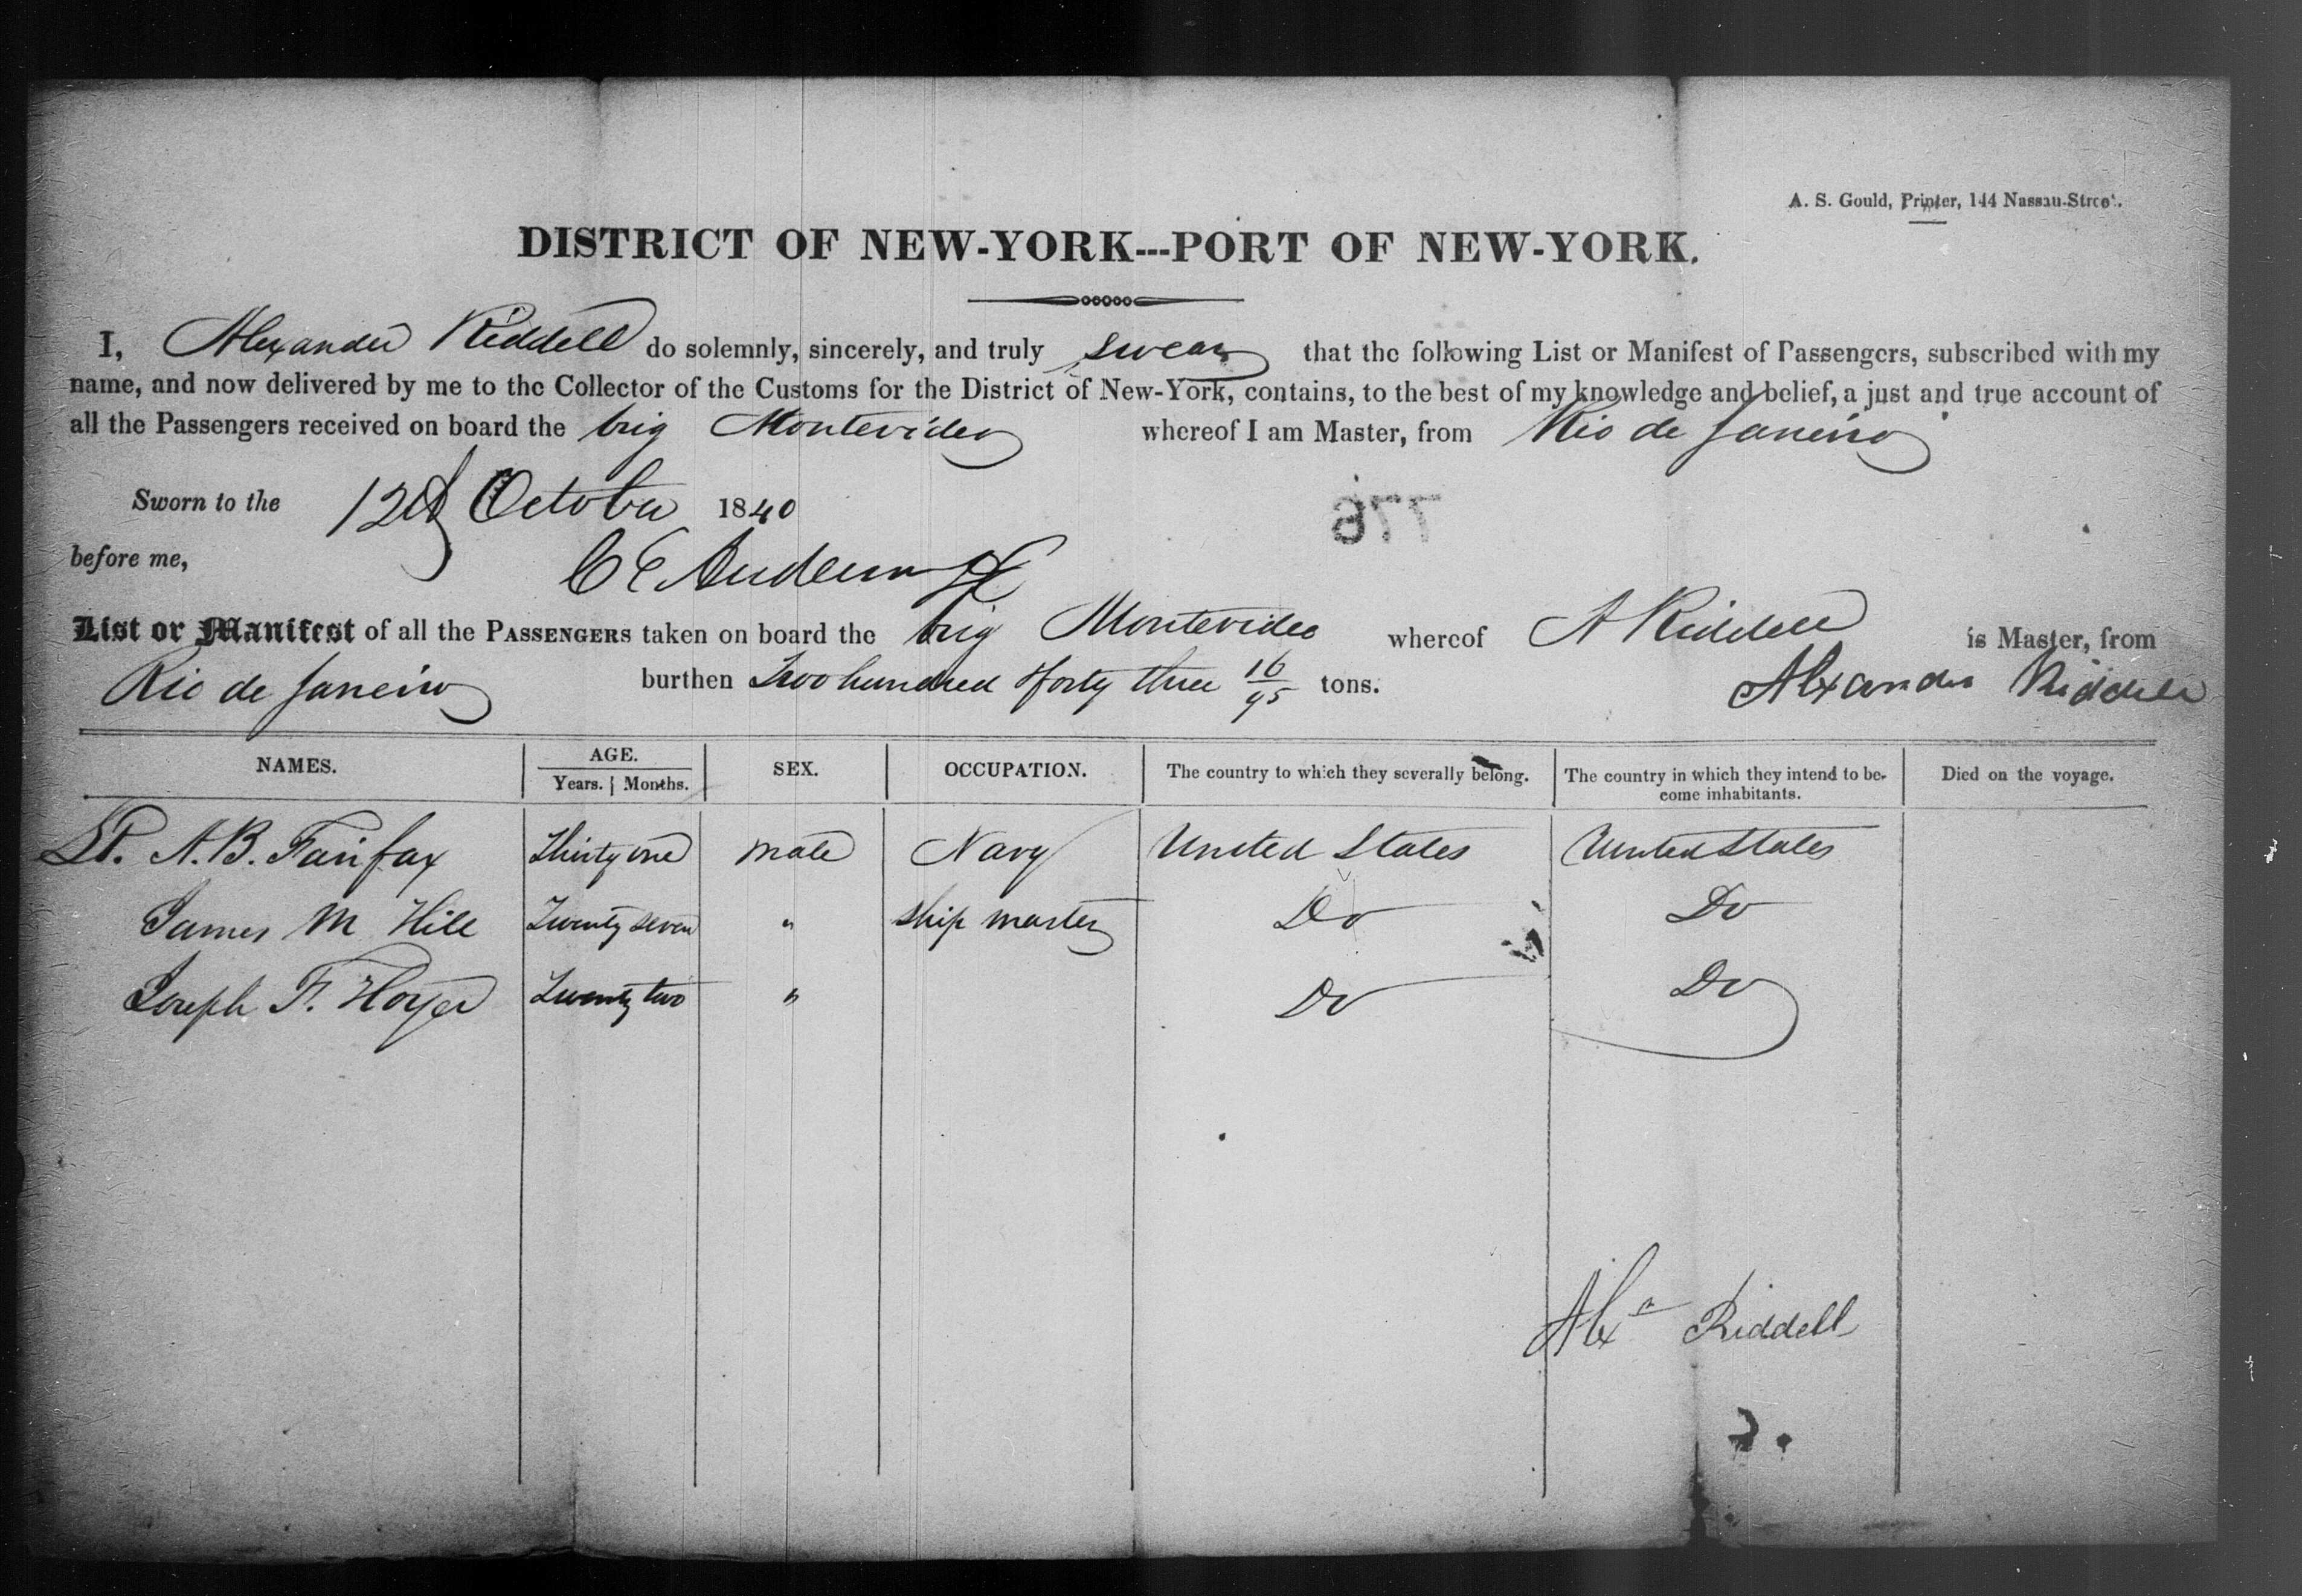 A. S. Gould, Printer, 144 Nassau-Street.
DISTRICT OF NEW-YORK---PORT OF NEW-YORK.
I, Alexander Riddell do solemnly, sincerely, and truly swear that the following List or Manifest of Passengers, subscribed with my
name, and now delivered by me to the Collector of the Customs for the District of New-York, contains, to the best of my knowledge and belief, a just and true account of
all the Passengers received on board the brig Montevideo whereof I am Master, from Rio de Janeiro
Sworn to the 12th October 1840
977
before me,
List or Manifest of all the PASSENGERS taken on board the brig Montevideo whereof A Riddell is Master, from
Rio de Janeiro burthen Two hundred & forty three 16/95 tons. Alexander Riddell
NAMES. AGE. SEX. OCCUPATION. The country to which they severally belong. The country in which they intend to be- Died on the voyage.
Years. Months. come inhabitants.
Lt. A. B. Fairfax Thirty one male Navy United States United States
James M Hill Twenty seven " ship master Do Do
Joseph F. Twenty two " Do Do
Alexr Riddell